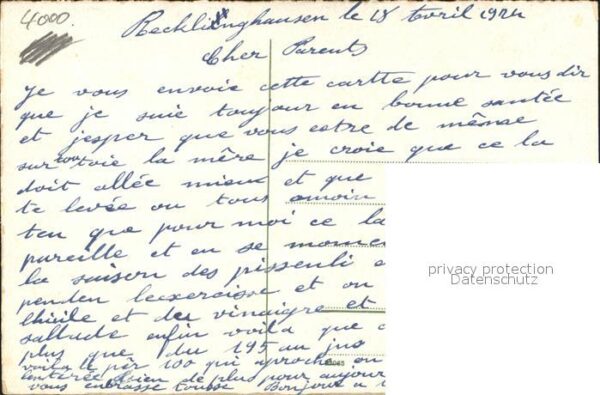 4000.
Recklinghausen le 18 Avril 1924
Cher Parents
Je vous envoie cette cartte pour vous dir
que je suie toujour en bonne santée
et jesper que vous estre de mênae
sur tou toie la mêre je croie que ce la
doit allée mieux et que
te levée ou tous amoin
ten que pour moi ce la
pareille et en se momen
la saison des pissenli e
penden lexercisse et on
lhuile et des vinaigre et
sallade enfin voila que
plus que du 195 au jus
voila le pêr 100 qui aproche en
rien de plus pour aujour
vous enbrasse tousse Bonjour a
privacy protection
Datenschutz